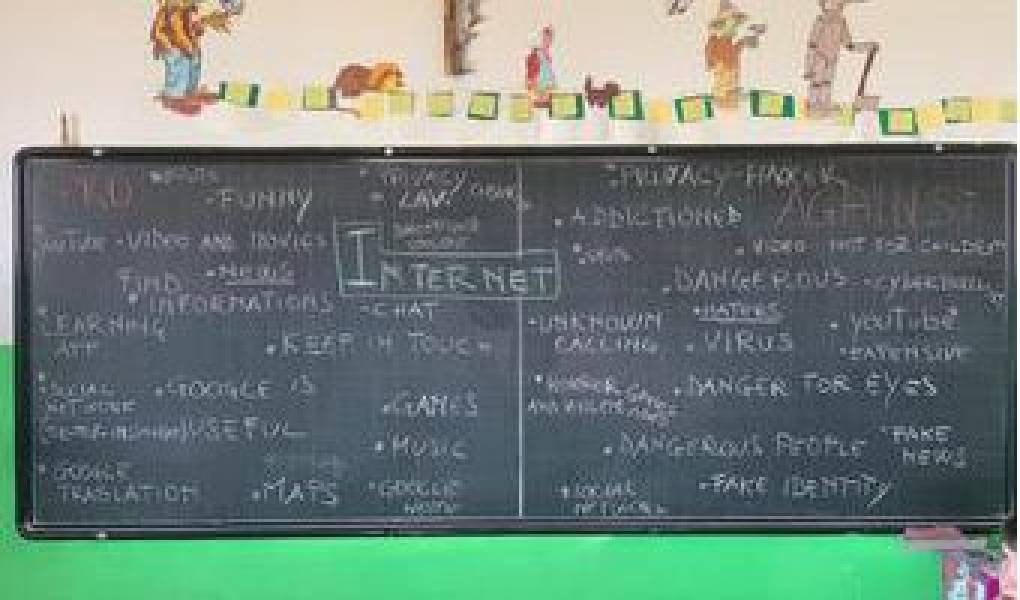 PRO
• FUNNY
PRIVACY
LAW
YOUTUBE • VIDEO AND MOVIES
• NEWS
FIND
INFORMATIONS
INTERNET
• CHAT
• LEARNING
APP
• KEEP IN TOUCH
• SOCIAL
NETWORK
• GOOGLE IS
(SOMETIMES) USEFUL
• GAMES
• MUSIC
• GOOGLE
TRASLATION
• MAPS
• GOOGLE
• PRIVACY-HACKER
AGAINST
• ADDICTIONED
• VIDEO NOT FOR CHILDREN
• DANGEROUS
• CYBERBULLY
• UNKNOWN
CALLING
• HATERS
• VIRUS
• YOUTUBE
• EXPENSIVE
• HORROR GAMES
• DANGER FOR EYES
• DANGEROUS PEOPLE
• FAKE
NEWS
• SOCIAL
NETWORK
• FAKE IDENTITY